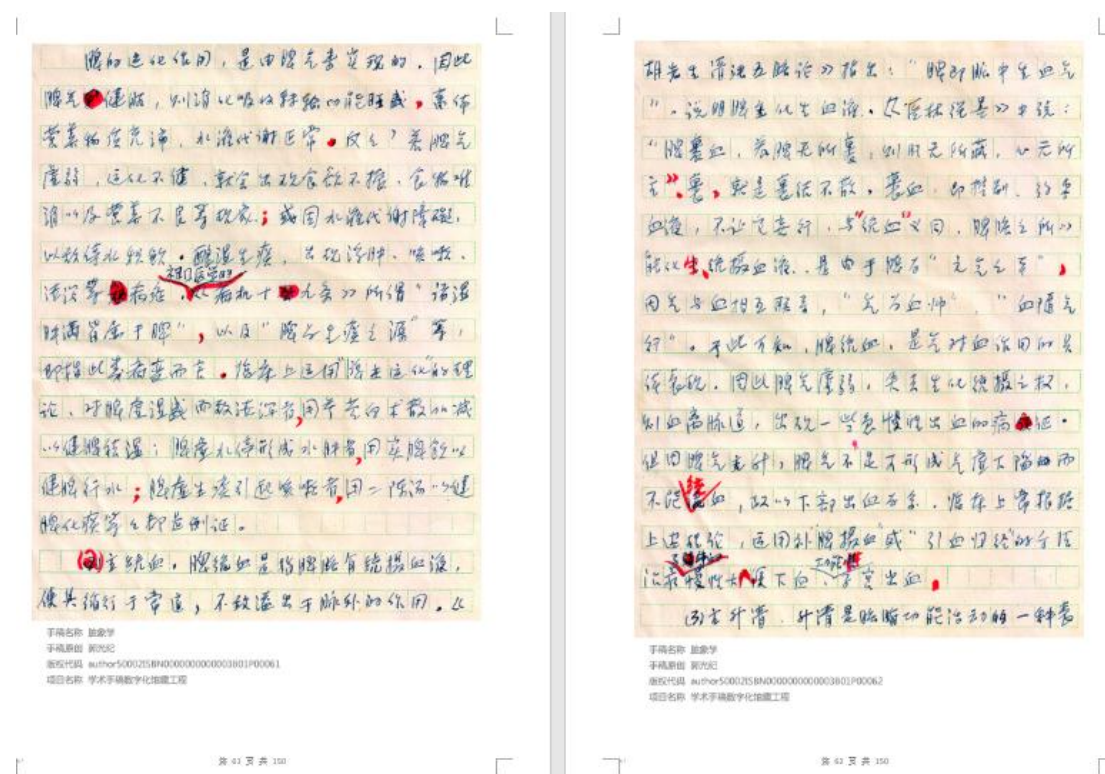 脾的运化作用，是由脾气来实现的。因此
脾气健旺，则消化吸收转输功能旺盛，
营养物质充沛，水液代谢正常。反之，若脾气
虚弱，运化不健，就会出现食欲不振、食物难
消以及营养不良等现象；或因水液代谢障碍，
以致停水积饮，酿湿生痰，出现浮肿、咳嗽、
泄泻等病症。
祖国医学的
《病机十九条》所谓“诸湿
肿满皆属于脾”，以及“脾为生痰之源”等，
即指此类病变而言。临床上运用“脾主运化”的理
论，对脾虚湿盛而致泄泻者，用参苓白术散加减
以健脾祛湿；脾虚水停形成水肿者，用实脾饮以
健脾行水；脾虚生痰引起咳嗽者，用二陈汤以健
脾化痰等等即是例证。
(2)主统血。脾统血是指脾脏有统摄血液，
使其循行于常道，不致溢出于脉外的作用。《
手稿名称 脏象学
手稿原创 郭光纪
版权代码 author50002ISBN0000000000003B01P00061
项目名称 学术手稿数字化馆藏工程
第 61 页 共 150
胡先生 五脏论》指出：“脾即脏中生血气
”。说明脾主化生血液。《医林绳墨》中说：
“脾裹血，若脾无所裹，则肝无所藏，心无所
主”。裹，就是裹结不散。裹血，即控制、约束
血液，不让它妄行，与“统血”义同。脾脏之所以
能化生、统摄血液，是由于脾为“元气之本”，
因气与血相互联系，“气为血帅”，“血随气
行”。于此可知，脾统血，是气对血作用的具
体表现。因此脾气虚弱，失去生化统摄之权，
则血离脉道，出现一些急慢性出血的病证。
但因脾气主升，脾气不足可形成气虚下陷而
不能统血，故以下部出血多系。临床上常根据
上述理论，运用“补脾摄血”或“引血归经”的方法
治疗慢性大便下血、
功能性
子宫出血。
(3)主升清。升清是脾脏功能活动的一种表
手稿名称 脏象学
手稿原创 郭光纪
版权代码 author50002ISBN0000000000003B01P00062
项目名称 学术手稿数字化馆藏工程
第 62 页 共 150